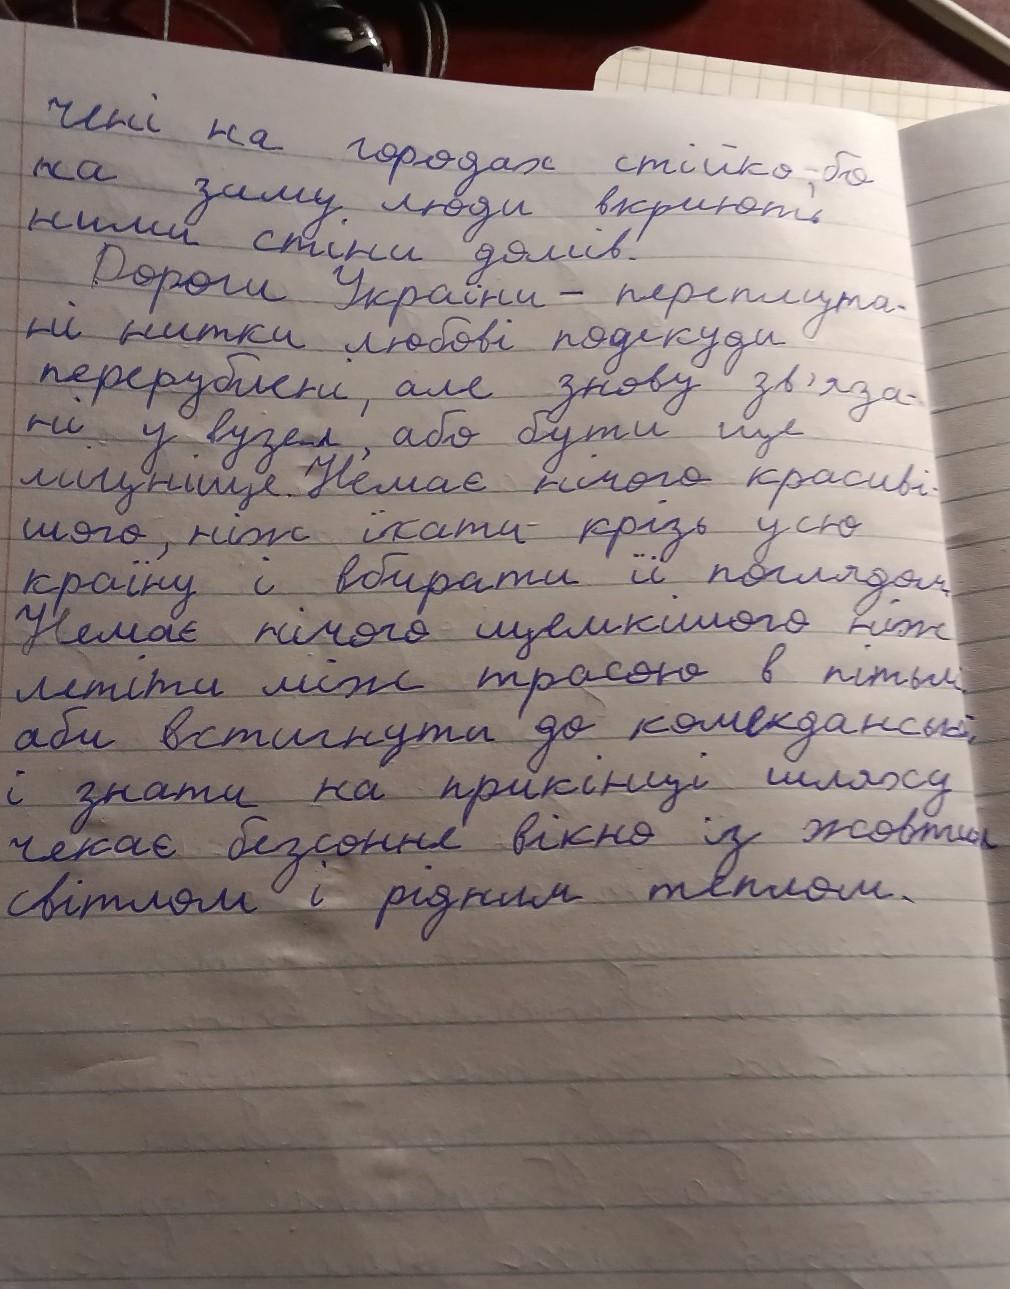 чені на городах стійко, бо
на зиму люди вкриють
ними стіни домів.
Дороги України – переплута-
ні нитки любові подекуди
перерублені, але знову зв'яза-
ні у вузел, або бути ще
міцніше. Немає нічого красиві-
шого, ніж їхати крізь усю
країну і вбирати її поглядом
Немає нічого щемкішого ніж
летіти між трасою в пітьмі
аби встигнути до коменданської,
і знати на прикінці шляху
чекає безсонне вікно із жовтим
світлом і рідним теплом.